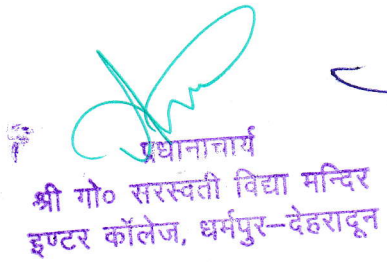 प्रधानाचार्य
श्री गो० सरस्वती विद्या मन्दिर
इण्टर कॉलेज, धर्मपुर–देहरादून